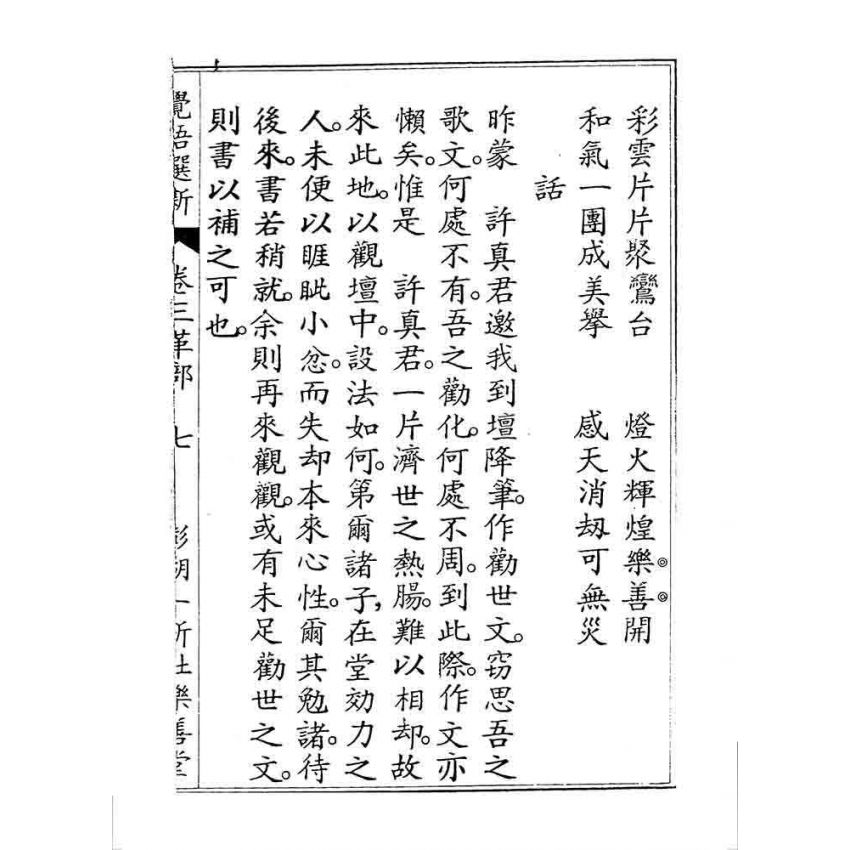 彩雲片片聚鸞台　燈火輝煌樂善開
和氣一團成美擧　感天消刼可無災
話
昨蒙　許真君邀我到壇降筆。作勸世文。窃思吾之
歌文。何處不有。吾之勸化。何處不周。到此際。作文亦
懶矣。惟是　許真君。一片濟世之熱腸。難以相却。故
來此地。以觀壇中。設法如何。第爾諸子，在堂効力之
人。未便以睚眦小忿。而失却本來心性。爾其勉諸。待
後來。書若稍就。余則再來觀觀。或有未足勸世之文。
則書以補之可也。
覺悟選新　卷三革部　七　彭湖一新社樂善堂